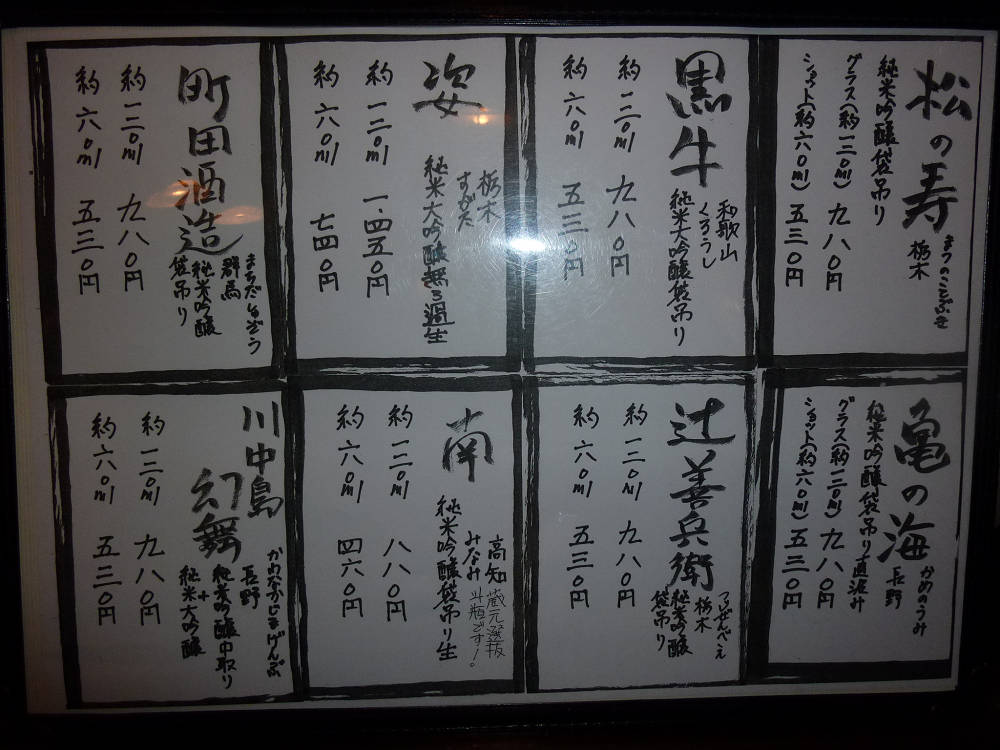 松の寿
まつのことぶき
栃木
純米吟醸袋吊り
グラス(約一二〇ml) 九八〇円
ショット(約六〇ml) 五三〇円
黒牛
和歌山
くろうし
純米大吟醸袋吊り
約一二〇ml 九八〇円
約六〇ml 五三〇円
姿
栃木
すがた
純米大吟醸無ろ過生
約一二〇ml 一.四五〇円
約六〇ml 七四〇円
町田酒造
まちだしゅぞう
群馬
純米吟醸
袋吊り
約一二〇ml 九八〇円
約六〇ml 五三〇円
亀の海
かめのうみ
長野
純米吟醸袋吊り直汲み
グラス(約一二〇ml) 九八〇円
ショット(約六〇ml) 五三〇円
辻善兵衛
つじぜんべえ
栃木
純米吟醸
袋吊り
約一二〇ml 九八〇円
約六〇ml 五三〇円
南
高知 蔵元選抜
みなみ 斗瓶です!。
純米吟醸袋吊り生
約一二〇ml 八八〇円
約六〇ml 四六〇円
川中島
幻舞
かわなかじまげんぶ
長野
純米吟醸中取り
+
純米大吟醸
約一二〇ml 九八〇円
約六〇ml 五三〇円